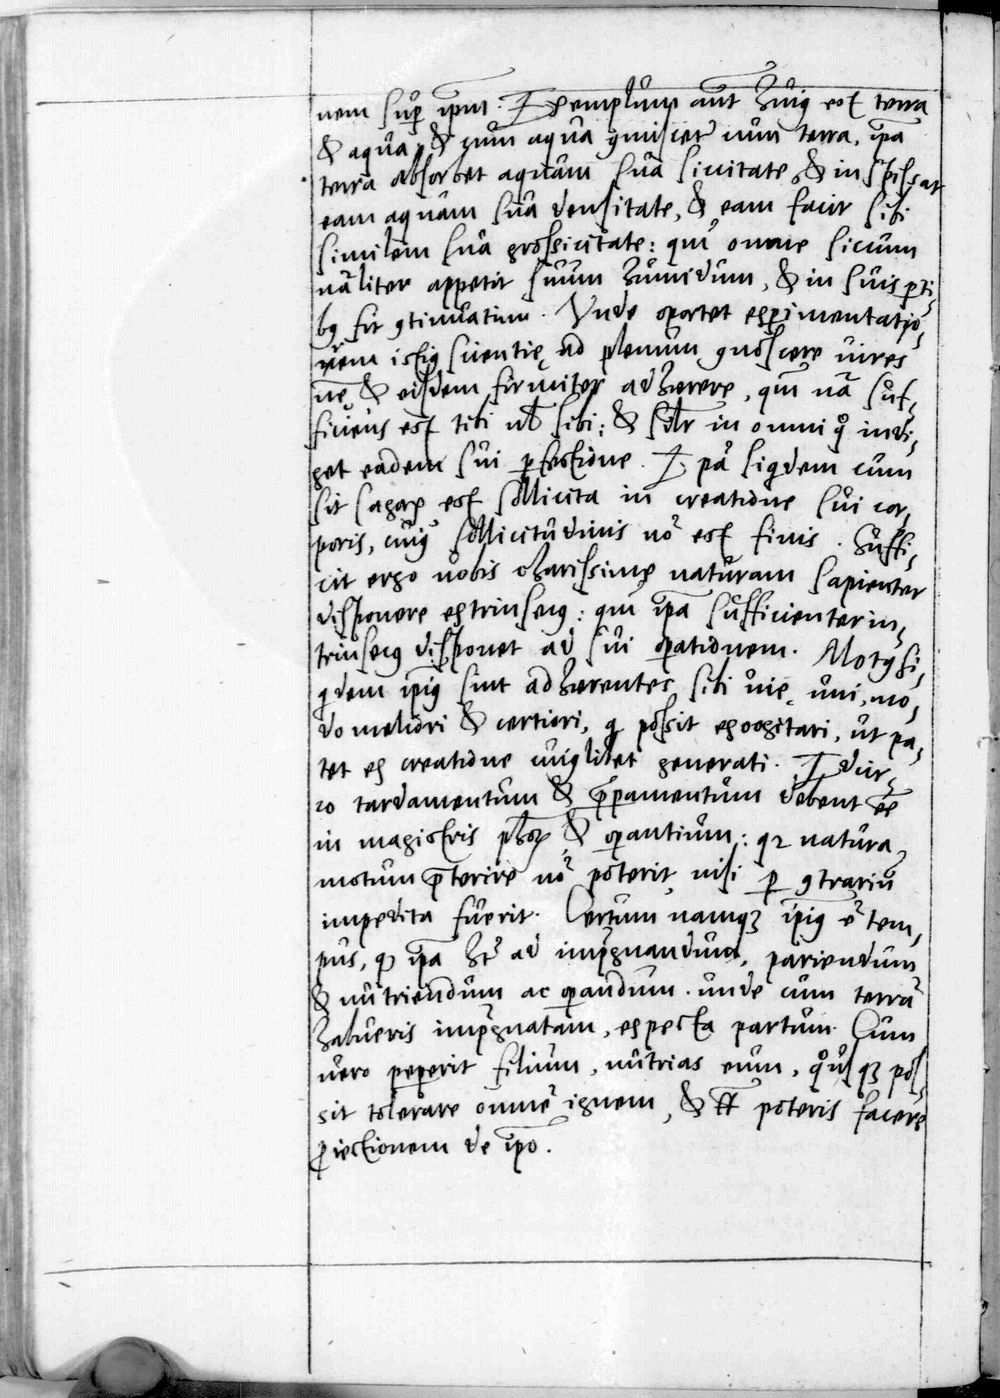 nem sup̱ ip̄m. Exemplum aūt huiꝰ est terra
& aqua, & cum aqua ꝯmiscet᷑ cum terra, ip̄a
terra absorbet aquam sua siccitate, & inspissat
eam aquam sua densitate, & eam facit sibi
similem sua grossicitate: qm̄ omne siccum
nāliter appetit suum humidum, & in suis ꝑti-
bꝰ fit ꝯtinuatum. Vnde oportet experimentatio-
nem istiꝰ scientię ad plenum ꝯnoscere uires
nę & eisdem firmiter adhærere, qm̄ nā suf-
ficiens est tibi ul̄ sibi: & sil̄r in omni qͦ indi-
get eadem sui perfectione. Ip̄a siqͥdem cum
sit sagax est sollicita in creatione sui cor-
poris, cuiꝰ sollicitudinis nō est finis. Suffi-
cit ergo uobis charissime naturam sapienter
disponere extrinsecꝰ: qm̄ ip̄a sufficienter in-
trinsecꝰ disponet ad sui oꝑationem. Motꝰ si-
qͥdem ip̄iꝰ sunt adhærentes sibi uię uni, mo-
do meliori & certiori, qͥ possit excogitari, ut pa-
tet ex creatione cuiꝰlibet generati. Idcir-
co tardamentum & p̄ꝑamentum debent eē
in magistris ph̄oꝝ & oꝑantium: qꝛ natura
motum p̄terire nō poterit, nisi ꝑ ꝯtrariū
impedita fuerit. Certum namqꝫ ip̄iꝰ ē tem-
pus, qͦ ip̄a h̄t ad imp̄gnandum, pariendum
& nutriendum ac oꝑandum. unde cum terrā
habueris imp̄gnatam, expecta partum. Cum
uero pepererit filium, nutrias eum, qͦusqꝫ pos-
sit tolerare omnē ignem, & tc̄ poteris facere
ꝓiectionem de ip̄o.